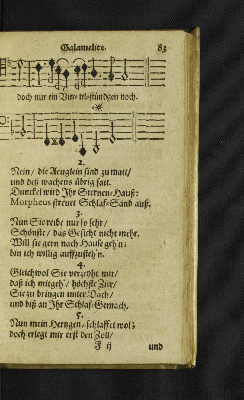 Galamelite. 83
doch nur ein Vier-tel-stündgen noch.
2.
Nein/ die Aeuglein sind zu matt/
und deß wachens übrig satt.
Dunckel wird Ihr Sternen-Hauß:
Morpheus streuet Schlaf-Sand auß.
3.
Nun Sie reibe nur so sehr/
Schönste/ das Gesicht nicht mehr.
Will sie gern nach Hause geh'n:
bin ich willig auffzusteh'n.
4.
Gleichwol Sie verzeyhe mir/
daß ich mitgeh'/ höchste Zier/
Sie zu bringen unter Dach/
und biß an Ihr Schlaf-Gemach.
5.
Nun mein Hertzgen/ schlaffet wol:
doch erlegt mir erst den Zoll/
F ij und